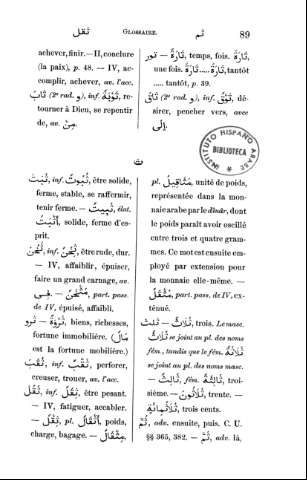 ثقل GLOSSAIRE. ثم 89
achever, finir. — II, conclure
(la paix), p. 48. — IV, ac-
complir, achever, av. l'acc.
تَابَ (2e rad. و), inf. تَوْبَةٌ, re-
tourner à Dieu, se repentir
de, av. مِنْ.
تور — تَارَةً, temps, fois. تَارَةً,
une fois. تَارَةً..... تَارَةً, tantôt
..... tantôt, p. 39.
تَاقَ (2e rad. و), inf. تَوْقٌ, dé-
sirer, pencher vers, avec
إِلَى.
INSTITUTO HISPANO ARABE
BIBLIOTECA
ث
ثَبَتَ, inf. ثُبُوتٌ, être solide,
ferme, stable, se raffermir,
tenir ferme. — ثَبِيتٌ, élat.
أَثْبَتُ, solide, ferme d'es-
prit.
ثَخُنَ, inf. ثَخْنٌ, être rude, dur.
— IV, affaiblir, épuiser,
faire un grand carnage, av.
فِى. — مُثْخَنٌ, part. pass.
de IV, épuisé, affaibli.
ثرو — ثَرْوَةٌ, biens, richesses,
fortune immobilière. (مَالٌ
est la fortune mobilière.)
ثَقَبَ, inf. ثَقْبٌ, perforer,
creuser, trouer, av. l'acc.
ثَقُلَ, inf. ثِقْلٌ, être pesant.
— IV, fatiguer, accabler.
— ثِقْلٌ, pl. أَثْقَالٌ, poids,
charge, bagage. — مِثْقَالٌ,
pl. مَثَاقِيلُ, unité de poids,
représentée dans la mon-
naie arabe par le dînâr, dont
le poids paraît avoir oscillé
entre trois et quatre gram-
mes. Ce mot est ensuite em-
ployé par extension pour
la monnaie elle-même. —
مُثْقَلٌ, part. pass. de IV, ex-
ténué.
ثلث — ثَلَاثٌ, trois. Le masc.
se joint au pl. des noms
fém., tandis que le fém. ثَلَاثَةٌ
se joint au pl. des noms masc.
— ثَالِثٌ, fém. ثَالِثَةٌ, troi-
sième. — ثَلَاثُونَ, trente. —
ثَلَاثُمِائَةٍ, trois cents.
ثُمَّ, adv. ensuite, puis. C. U.
§§ 365, 382. — ثَمَّ, adv. là,